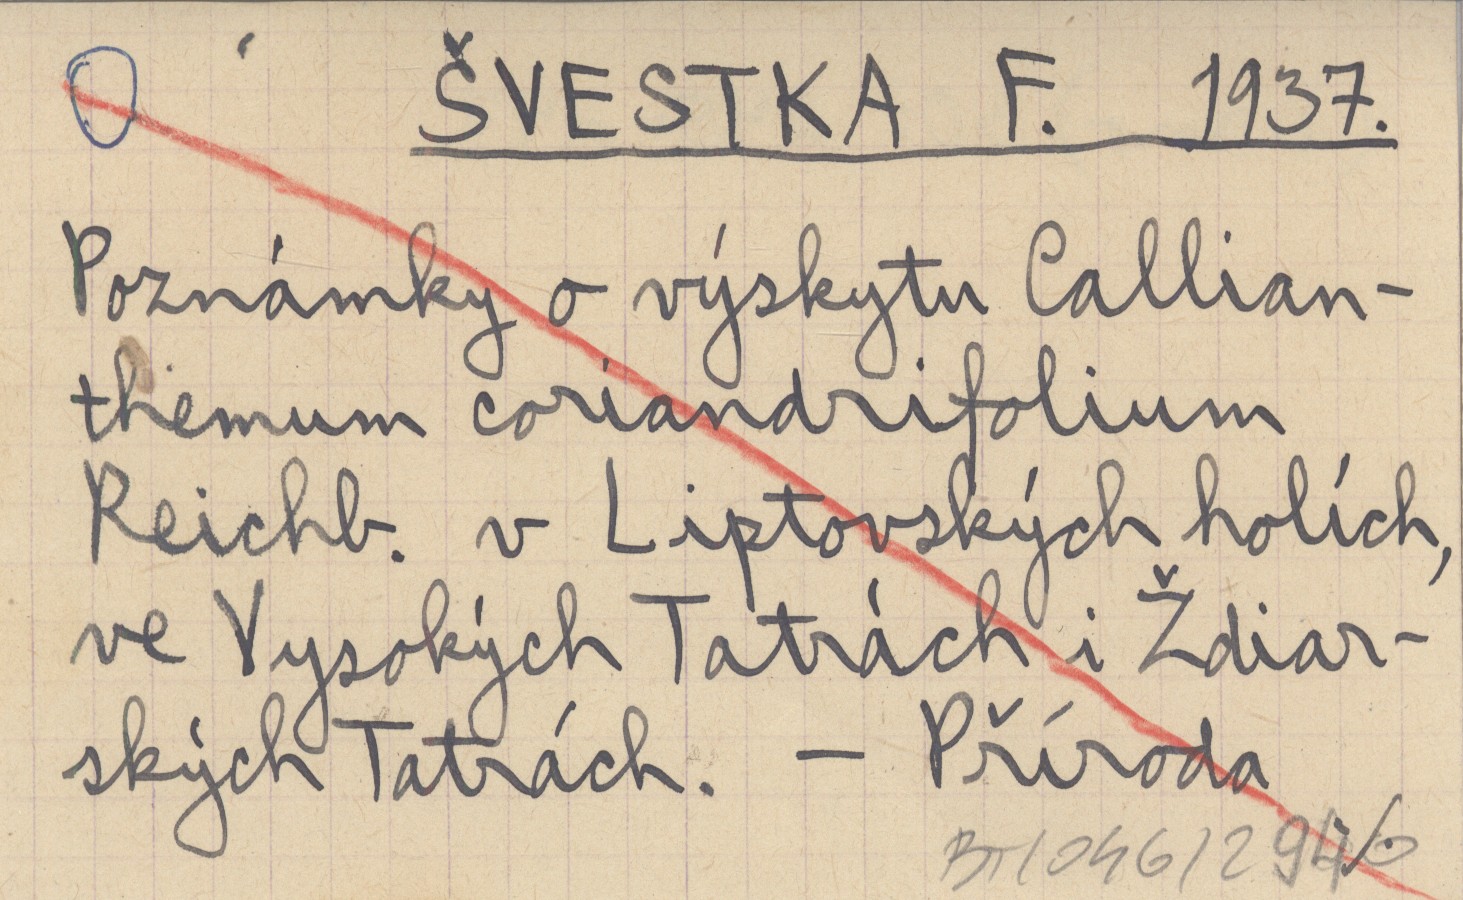 ŠVESTKA F. 1937.
Poznámky o výskytu Callian-
themum coriandrifolium
Reichb. v Liptovských holích,
ve Vysokých Tatrách i Ždiar-
ských Tatrách. – Příroda